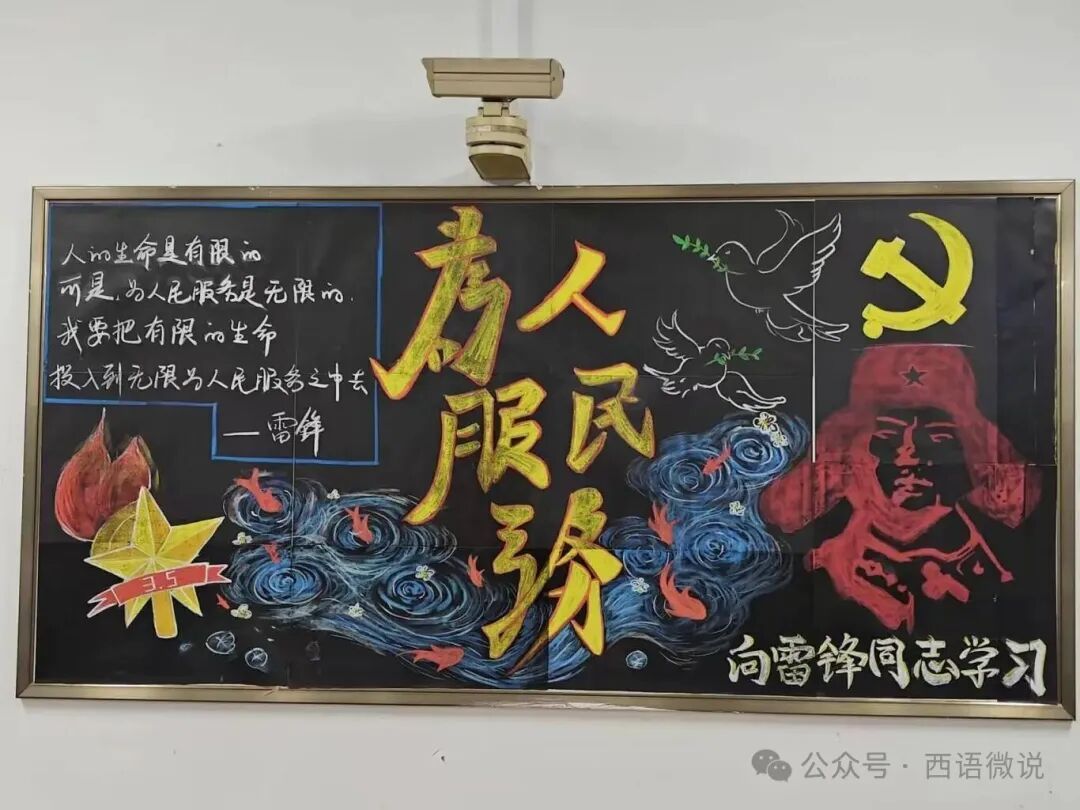 人的生命是有限的
可是,为人民服务是无限的,
我要把有限的生命
投入到无限为人民服务之中去
—雷锋
为人民服务
3.5
向雷锋同志学习
公众号·西语微说